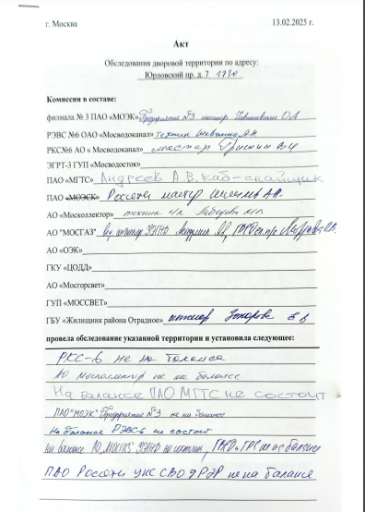 г. Москва 13.02.2025 г.
Акт
Обследования дворовой территории по адресу:
Юрловский пр. д.
Комиссия в составе:
филиала № 3 ПАО «МОЭК» Предприятие №3 инженер
РЭВС №6 ОАО «Мосводоканал» техник
РКС№6 АО « Мосводоканал» мастер
ЭГРТ-3 ГУП «Мосводосток»
ПАО «МГТС» Андреев А.В. каб-спайщик
ПАО «МОЭСК» Россети мастер
АО «Москоллектор» техник
АО "МОСГАЗ"
АО «ОЭК»
ГКУ «ЦОДД»
АО «Мосгорсвет»
ГУП «МОССВЕТ»
ГБУ «Жилищник района Отрадное» инженер Захарова Е В
провела обследование указанной территории и установила следующее:
РКС-6 не на балансе
АО москоллектор не на балансе
На балансе ПАО МГТС не состоит
ПАО "МОЭК" Предприятие №3 не на балансе
На балансе РЭВС-6 не состоит
На балансе АО "МОСГАЗ" не состоит, не на балансе
ПАО Россети не на балансе